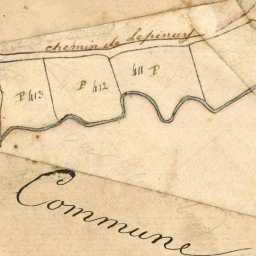 chemin de Lepinay
P 413
P 412
411 P
Commune